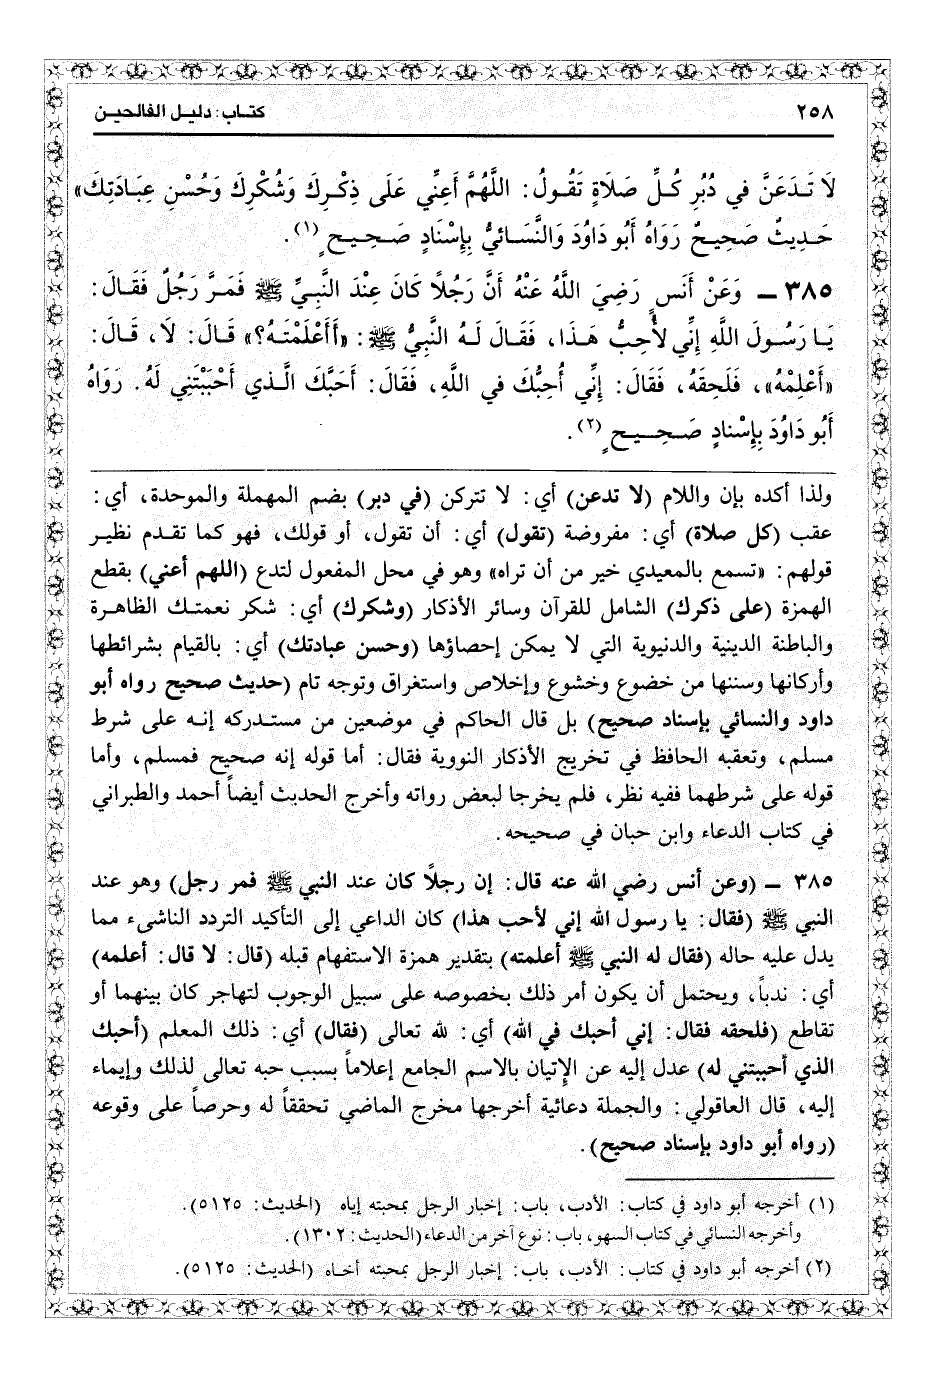 ٢٥٨
كتاب: دليل الفالحين
لَا تَدَعَنَّ في دُبُرِ كُلِّ صَلَاةٍ تَقُولُ: اللَّهُمَّ أَعِنِّي عَلَى ذِكْرِكَ وَشُكْرِكَ وَحُسْنِ عِبَادَتِكَ»
حَدِيثٌ صَحِيحٌ رَوَاهُ أَبُو دَاوُدَ وَالنَّسَائيُّ بِإِسْنَادٍ صَحِيحٍ (١).
٣٨٥ ــ وَعَنْ أَنَسٍ رَضِيَ اللَّهُ عَنْهُ أَنَّ رَجُلًا كَانَ عِنْدَ النَّبِيِّ ﷺ فَمَرَّ رَجُلٌ فَقَالَ:
يَا رَسُولَ اللَّهِ إِنِّي لأُحِبُّ هَذَا، فَقَالَ لَهُ النَّبِيُّ ﷺ: «أَأَعْلَمْتَهُ؟» قَالَ: لَا، قَالَ:
«أَعْلِمْهُ»، فَلَحِقَهُ، فَقَالَ: إِنِّي أُحِبُّكَ في اللَّهِ، فَقَالَ: أَحَبَّكَ الَّذي أَحْبَبْتَنِي لَهُ. رَوَاهُ
أَبُو دَاوُدَ بِإِسْنادٍ صَحِيحٍ (٢).
ولذا أكده بإن واللام (لا تدعن) أي: لا تتركن (في دبر) بضم المهملة والموحدة، أي:
عقب (كل صلاة) أي: مفروضة (تقول) أي: أن تقول، أو قولك، فهو كما تقدم نظير
قولهم: «تسمع بالمعيدي خير من أن تراه» وهو في محل المفعول لتدع (اللهم أعني) بقطع
الهمزة (على ذكرك) الشامل للقرآن وسائر الأذكار (وشكرك) أي: شكر نعمتك الظاهرة
والباطنة الدينية والدنيوية التي لا يمكن إحصاؤها (وحسن عبادتك) أي: بالقيام بشرائطها
وأركانها وسننها من خضوع وخشوع وإخلاص واستغراق وتوجه تام (حديث صحيح رواه أبو
داود والنسائي بإسناد صحيح) بل قال الحاكم في موضعين من مستدركه إنه على شرط
مسلم، وتعقبه الحافظ في تخريج الأذكار النووية فقال: أما قوله إنه صحيح فمسلم، وأما
قوله على شرطهما ففيه نظر، فلم يخرجا لبعض رواته وأخرج الحديث أيضاً أحمد والطبراني
في كتاب الدعاء وابن حبان في صحيحه.
٣٨٥ ــ (وعن أنس رضي الله عنه قال: إن رجلاً كان عند النبي ﷺ فمر رجل) وهو عند
النبي ﷺ (فقال: يا رسول الله إني لأحب هذا) كان الداعي إلى التأكيد التردد الناشىء مما
يدل عليه حاله (فقال له النبي ﷺ أعلمته) بتقدير همزة الاستفهام قبله (قال: لا قال: أعلمه)
أي: ندباً، ويحتمل أن يكون أمر ذلك بخصوصه على سبيل الوجوب لتهاجر كان بينهما أو
تقاطع (فلحقه فقال: إني أحبك في الله) أي: لله تعالى (فقال) أي: ذلك المعلم (أحبك
الذي أحببتني له) عدل إليه عن الإتيان بالاسم الجامع إعلاماً بسبب حبه تعالى لذلك وإيماء
إليه، قال العاقولي: والجملة دعائية أخرجها مخرج الماضي تحققاً له وحرصاً على وقوعه
(رواه أبو داود بإسناد صحيح).
(١) أخرجه أبو داود في كتاب: الأدب، باب: إخبار الرجل بمحبته إياه (الحديث: ٥١٢٥).
وأخرجه النسائي في كتاب السهو، باب: نوع آخر من الدعاء (الحديث: ١٣٠٢).
(٢) أخرجه أبو داود في كتاب: الأدب، باب: إخبار الرجل بمحبته أخاه (الحديث: ٥١٢٥).